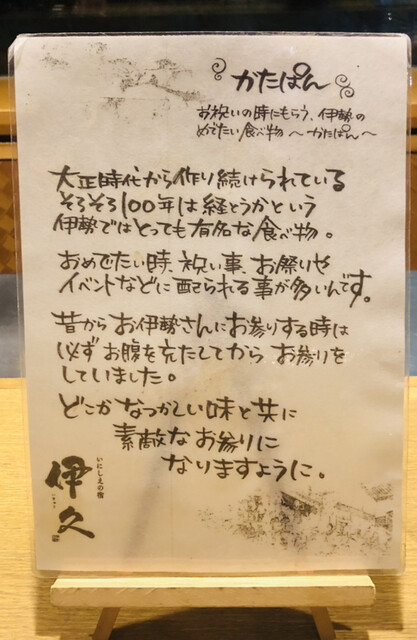 かたぱん
お祝いの時にもらう、伊勢の
めでたい食べ物 ～かたぱん～
大正時代から作り続けられている
そろそろ100年は経とうかという
伊勢ではとっても有名な食べ物。
おめでたい時、祝い事、お祭りや
イベントなどに配られる事が多いんです。
昔からお伊勢さんにお参りする時は
必ずお腹を充たしてからお参りを
していました。
どこかなつかしい味と共に
素敵なお参りに
なりますように。
いにしえの宿
伊久